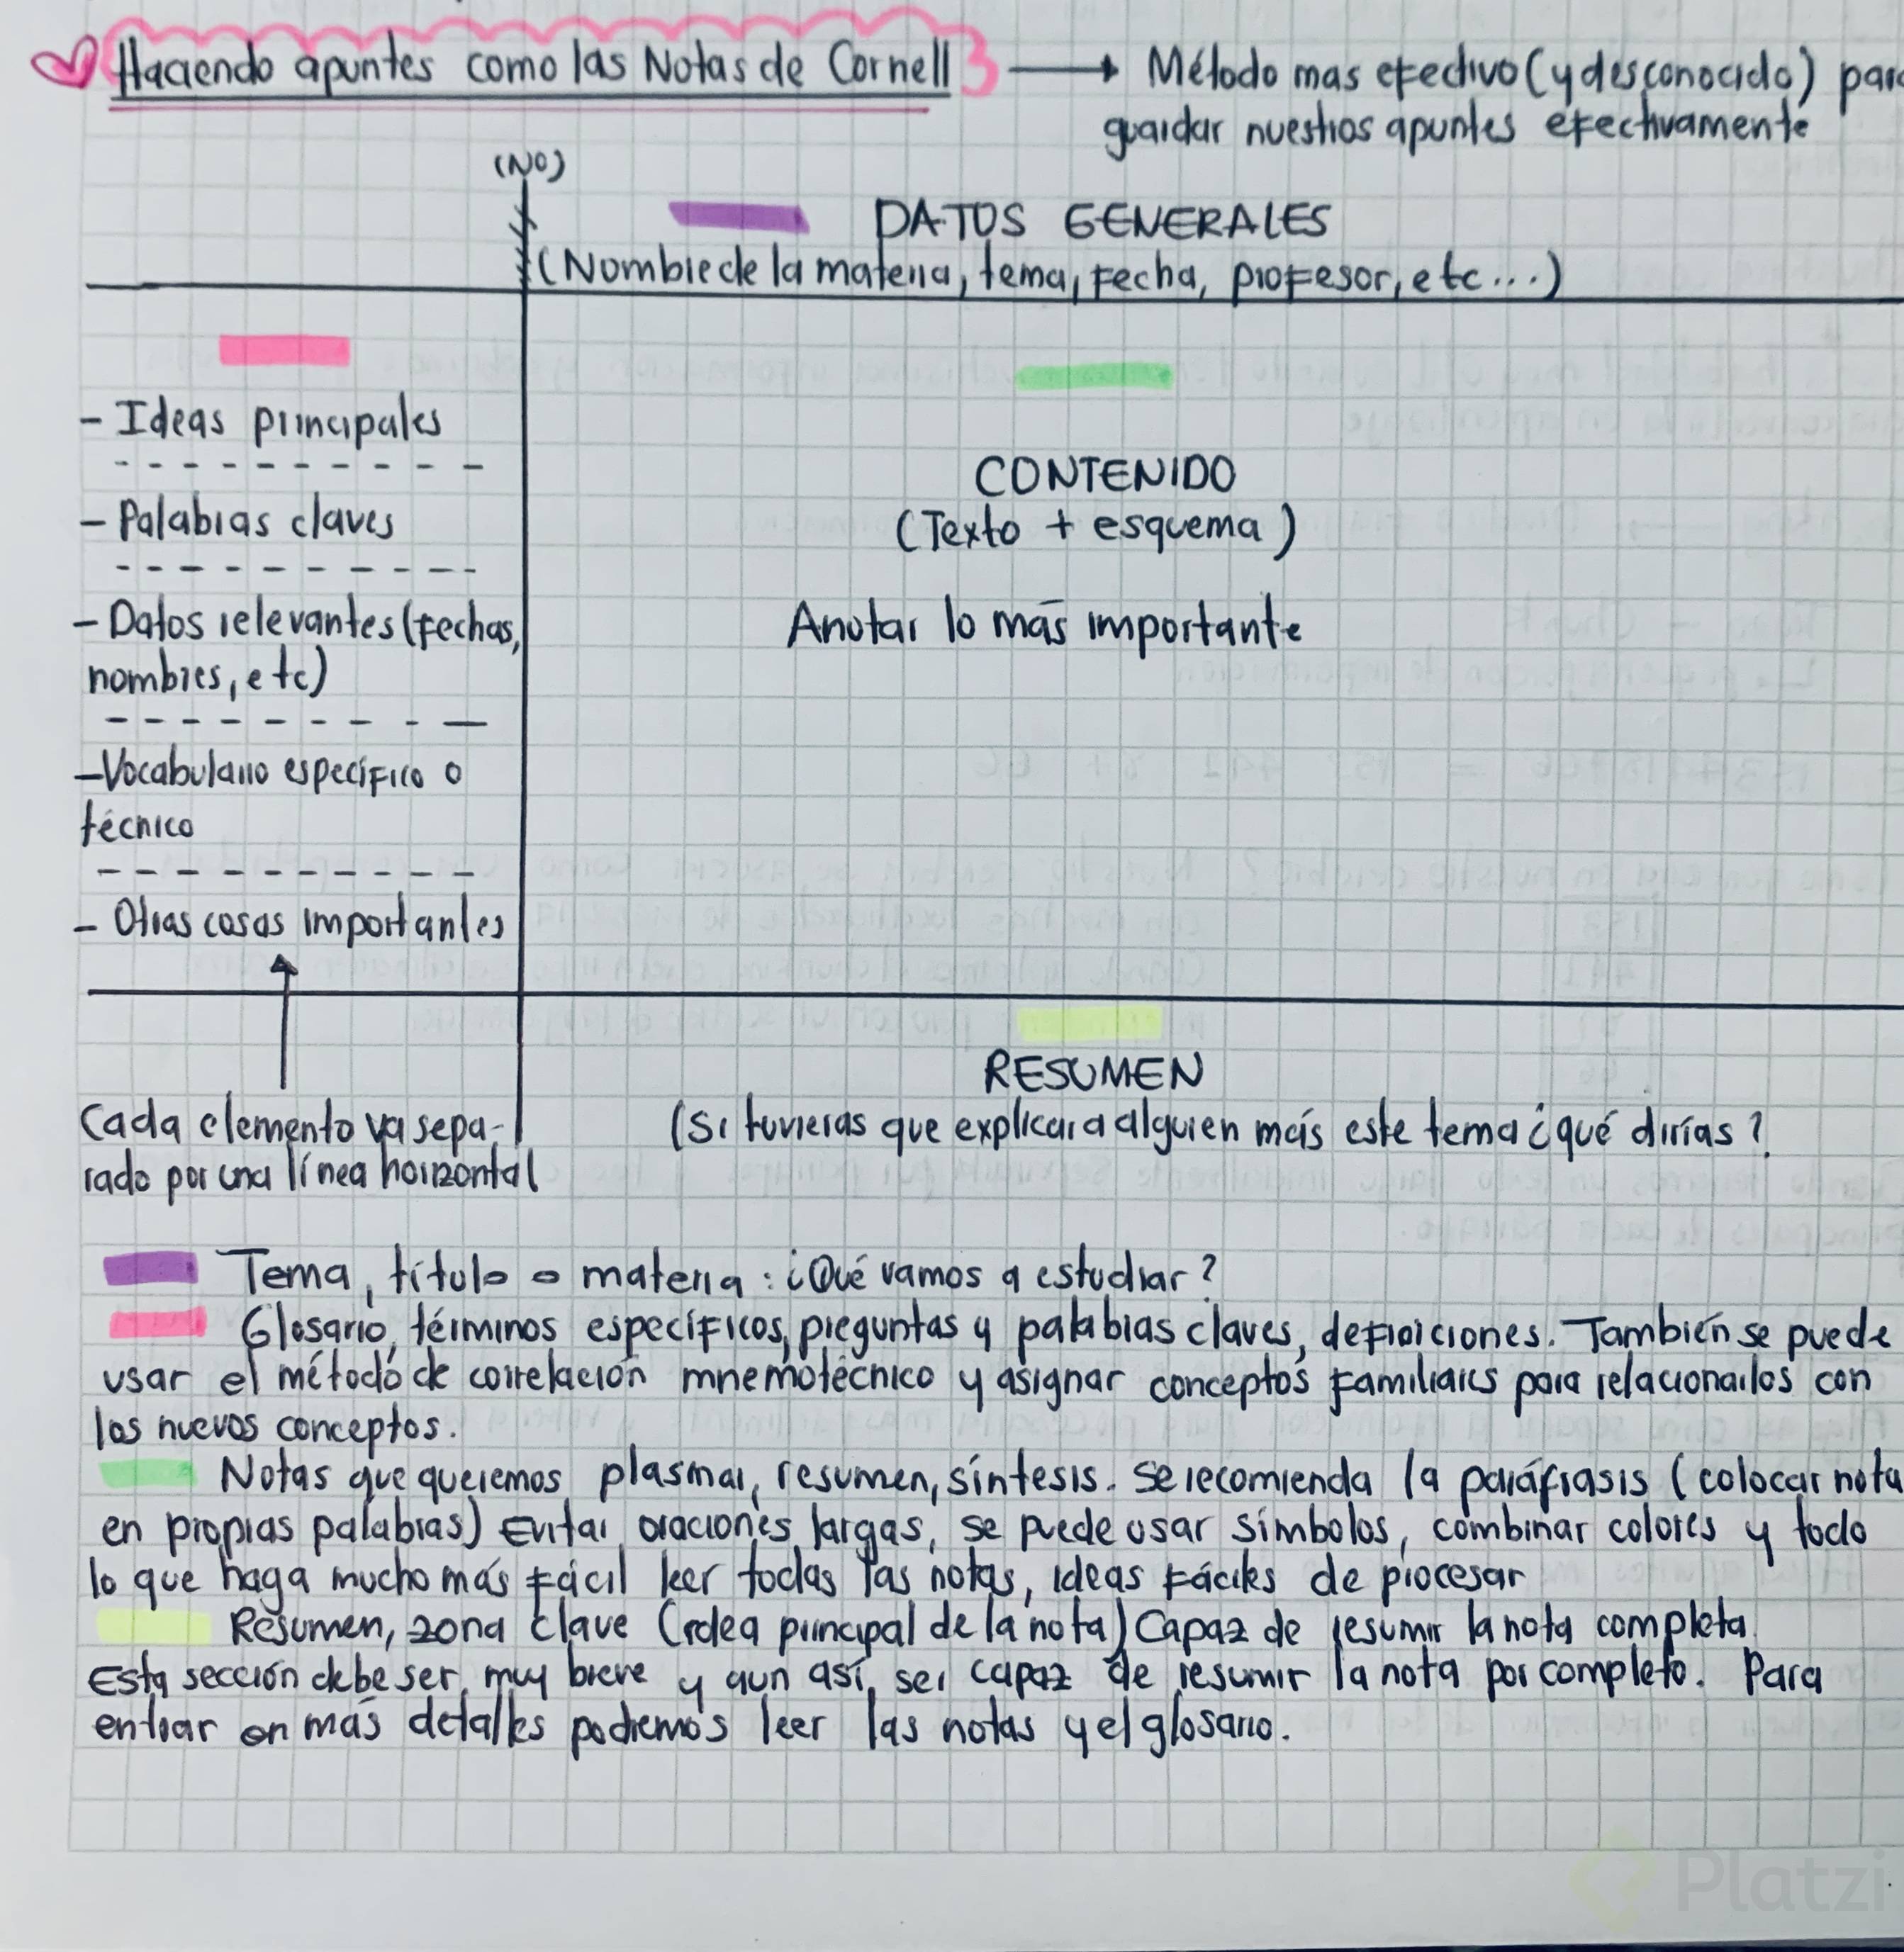 Haciendo apuntes como las Notas de Cornell → Método mas efectivo (y desconocido) para
guardar nuestros apuntes efectivamente
(NO)
DATOS GENERALES
(Nombre de la materia, tema, fecha, profesor, etc...)
- Ideas principales
- Palabras claves
- Datos relevantes (fechas,
nombres, etc)
- Vocabulario específico o
técnico
- Otras cosas importantes
CONTENIDO
(Texto + esquema)
Anotar lo más importante
Cada elemento va sepa-
rado por una línea horizontal
RESUMEN
(Si tuvieras que explicar a alguien más este tema ¿qué dirías?
Tema, título o materia: ¿Qué vamos a estudiar?
Glosario, términos específicos, preguntas y palabras claves, definiciones. También se puede
usar el método de correlación mnemotécnico y asignar conceptos familiares para relacionarlos con
los nuevos conceptos.
Notas que queremos plasmar, resumen, síntesis. Se recomienda la paráfrasis (colocar nota
en propias palabras) Evitar oraciones largas, se puede usar símbolos, combinar colores y todo
lo que haga mucho más fácil leer todas las notas, ideas fáciles de procesar
Resumen, zona clave (idea principal de la nota) Capaz de resumir la nota completa.
Esta sección debe ser muy breve y aun así, ser capaz de resumir la nota por completo. Para
entrar en más detalles podremos leer las notas y el glosario.
Platzi